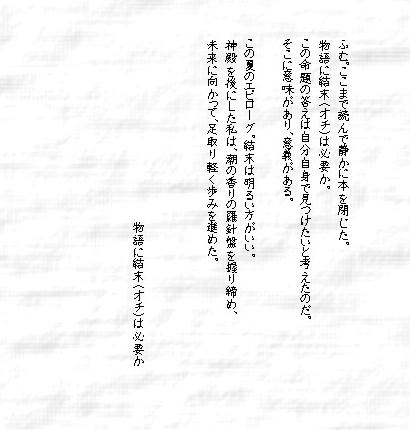 ふむ。ここまで読んで静かに本を閉じた。
物語に結末（オチ）は必要か。
この命題の答えは自分自身で見つけたいと考えたのだ。
そこに意味があり、意義がある。
この夏のエピローグ。結末は明るい方がいい。
神殿を後にした私は、潮の香りの羅針盤を握り締め、
未来に向かって、足取り軽く歩みを進めた。
物語に結末（オチ）は必要か